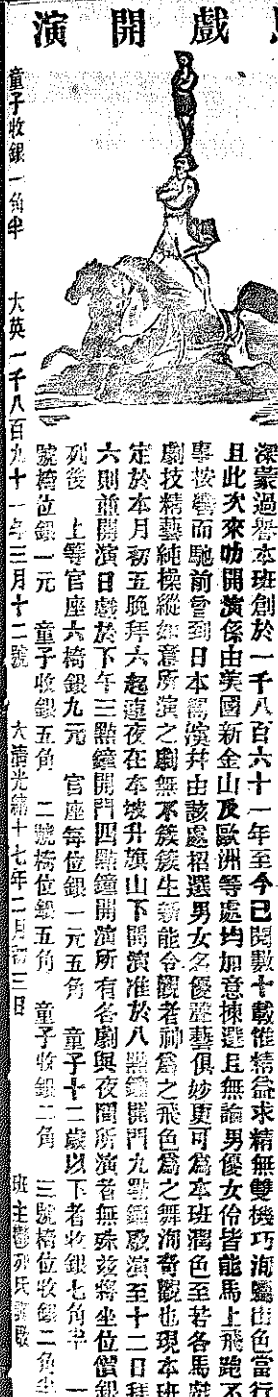 戲開演
深蒙過譽本班創於一千八百六十一年至今已閱數十載惟精益求精無雙機巧洵屬出色當行
且此次來叻開演係由美國新金山及歐洲等處均加意揀選且無論男優女伶皆能馬上飛跑了
事按轡而馳前曾到日本演并由該處招選男女名優聲藝俱妙更可為本班潤色至若各馬戲
劇技精藝純操縱如意所演之劇無不簇簇生新能令觀者神為之飛色為之舞洵奇觀也現本班
定於本月初五晚拜六起連夜在本坡升旗山下開演准於八點鐘開門九點鐘啟演至十二日拜
六則並開演日戲於下午三點鐘開門四點鐘開演所有各劇與夜間所演者無殊茲將坐位價銀
列後　上等官座六椅銀九元　官座每位銀一元五角　童子十二歲以下者收銀七角半　一
號椅位銀一元　童子收銀五角　二號椅位銀五角　童子收銀二角　三號椅位收銀二角半
童子收銀一角半　大英一千八百九十一年三月十二號　大清光緒十七年二月初三日　班主氏謹啟